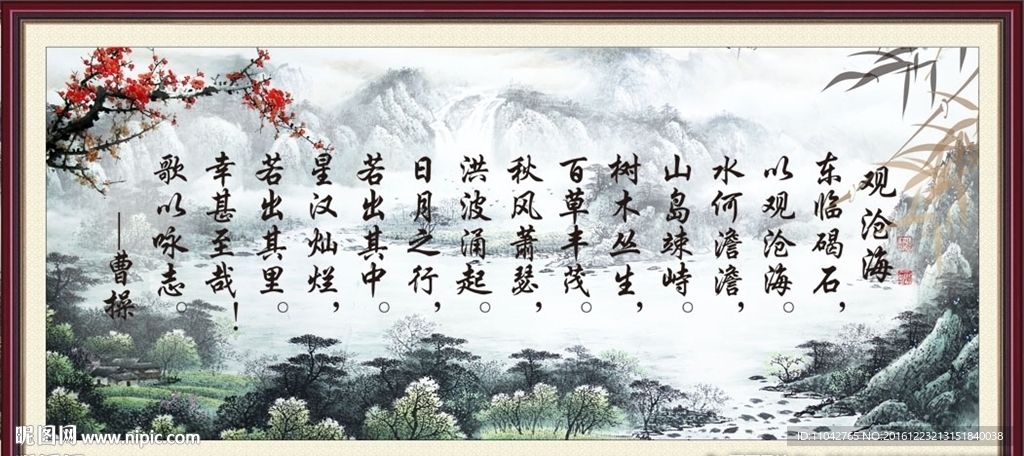 观沧海
东临碣石，
以观沧海。
水何澹澹，
山岛竦峙。
树木丛生，
百草丰茂。
秋风萧瑟，
洪波涌起。
日月之行，
若出其中。
星汉灿烂，
若出其里。
幸甚至哉！
歌以咏志。
——曹操
昵图网 www.nipic.com
ID:11042765 NO:20161223213151840038